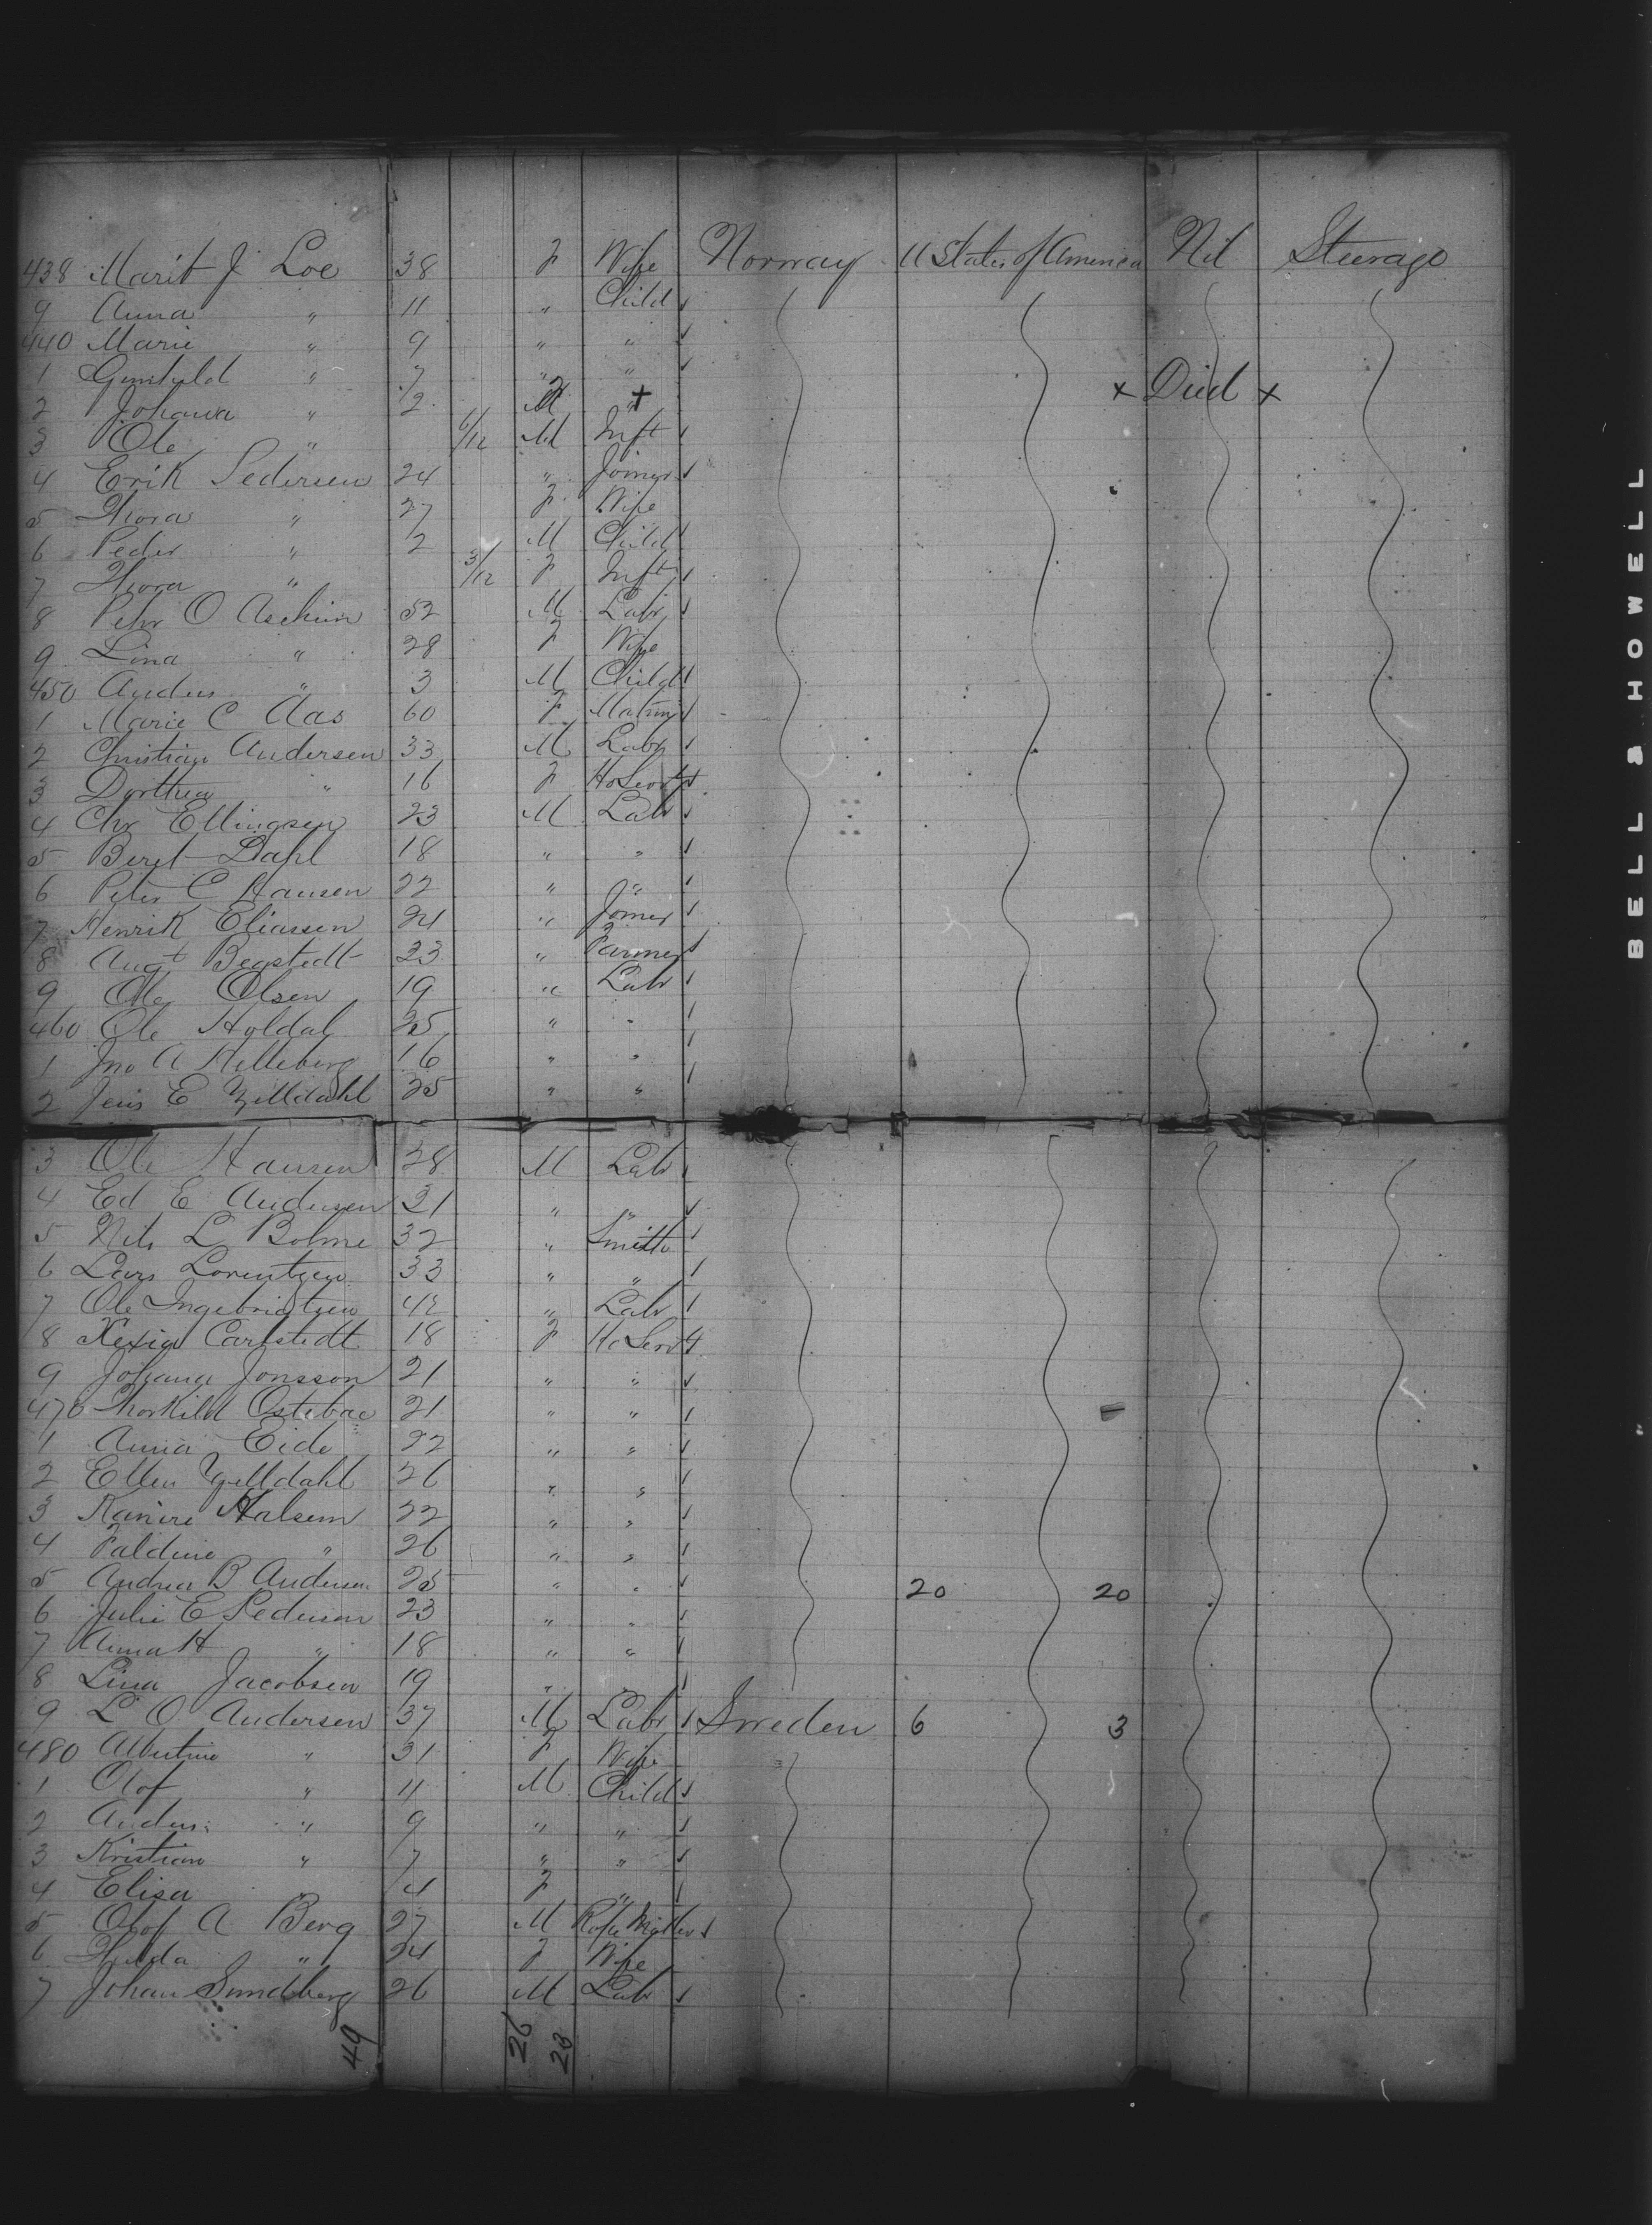 438 Marit J. Loe 38 F Wife Norway U States of America Nil Steerage
9 Anna " 11 " Child
440 Marie " 9 " "
1 Gunhild " 7 " "
2 Johanna " 2 F " + x Died x
3 Ole " 6/12 M Inft
4 Erik Pedersen 24 " Joiner
5 Thora " 27 F Wife
6 Peder " 2 M Child
7 Thora " 3/12 F Inft
8 Pehr O 52 M Labr
9 Lina " 28 F Wife
450 Anders " 3 M Child
1 Marie C Aas 60 F
2 Christian Andersen 33 M Labr
3 Dorthea " 16 F HoServt
4 Chr Ellingsen 23 M Labr
5 Beret Dahl 18 " "
6 Peter C Hansen 22 " "
7 Henrik Eliassen 24 " Joiner
8 Augt Begstedt 23 " Farmer
9 Ole Olsen 19 " Labr
460 Ole Holdal 35 " "
1 Jno A Helleberg 16 " "
2 Jens E Gylldahl 25 " "
3 Ole Hansen 28 M Labr
4 Ed E Andersen 21 " "
5 Nils L Bolme 32 " Smith
6 Lars Lorentzen 33 " "
7 Ole Ingebrigtsen 42 " Labr
8 Carlstedt 18 F HoServt
9 Johana Jonsson 21 " "
470 Thorkild Ostebae 21 " "
1 Anna Eide 22 " "
2 Ellen Gylldahl 26 " "
3 Halsem 22 " "
4 " 26 " "
5 Andrea B Andersen 25 " " 20 20
6 Julie E Pedersen 23 " "
7 Anna H " 18 " "
8 Lina Jacobsen 19 " "
9 L O Andersen 37 M Labr Sweden 6 3
480 Albertine " 31 F Wife
1 Olof " 11 M Child
2 Anders " 9 " "
3 Kristian " 7 " "
4 Elisa " 4 F "
5 Olof A Berg 27 M
6 Hulda " 24 F Wife
7 Johan Sundberg 26 M Labr
49 26 23
BELL & HOWELL